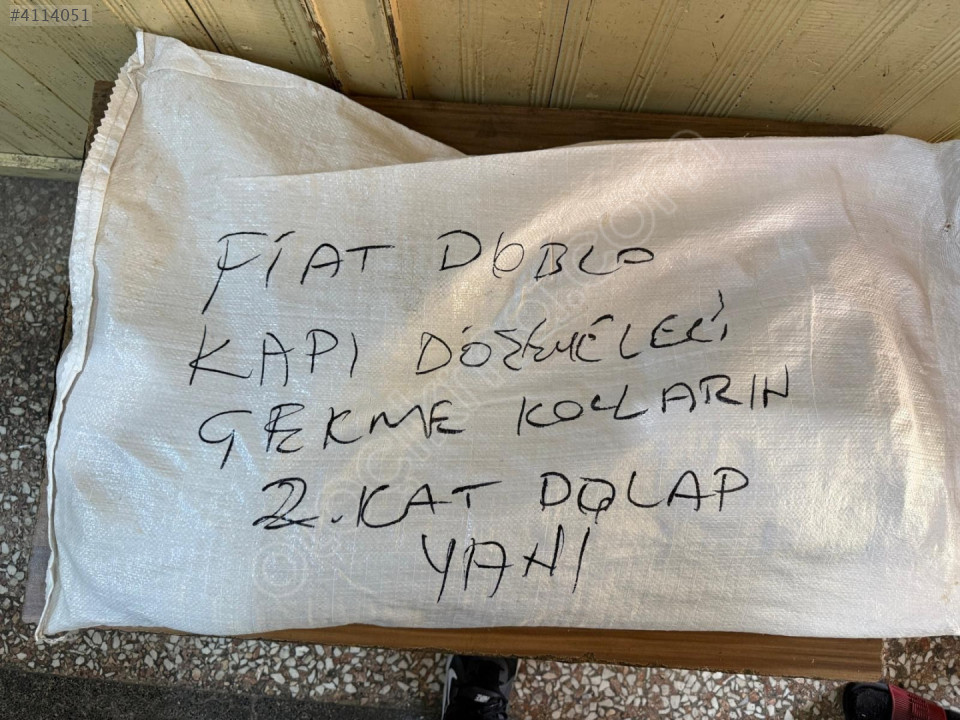 #4114051
FİAT DOBLO
KAPI DÖŞEMELERİ
ÇEKME KOLLARIN
2.KAT DOLAP
YANI